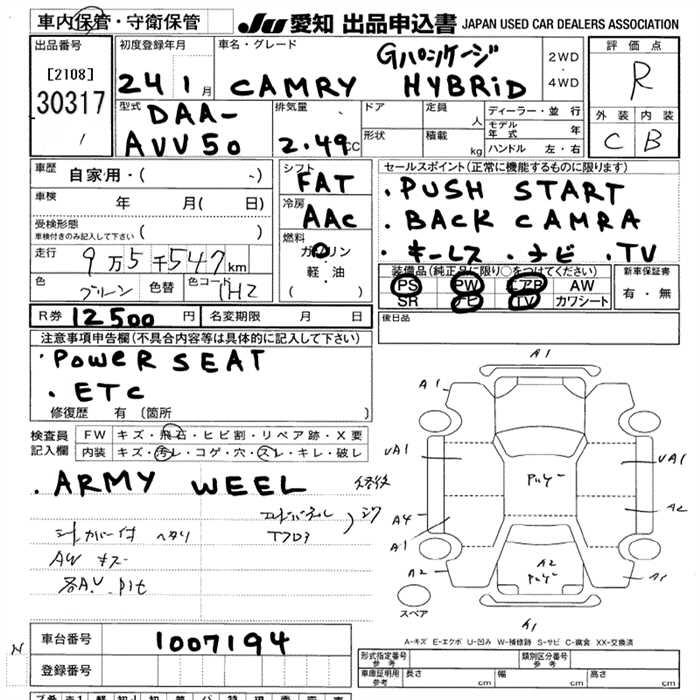 車内保管・守衛保管
JU 愛知 出品申込書 JAPAN USED CAR DEALERS ASSOCIATION
出品番号
[2108]
30317
初度登録年月
24 1月
車名・グレード
Gパッケージ
CAMRY HYBRID
2WD
4WD
評価点
R
外装 内装
C B
型式
DAA-
AVV50
排気量
2.49CC
ドア
形状
定員
人
積載
kg
ディーラー・並行
モデル年式 年
ハンドル 左・右
車歴
自家用・( )
車検
年 月 ( 日)
受検形態
車検付きのみ記入して下さい ( )
走行
9万5千547km
色
グリーン
色替
色コード
1H2
シフト
FAT
冷房
AAC
燃料
ガソリン
軽・油
( )
セールスポイント(正常に機能するものに限ります)
・PUSH START
・BACK CAMRA
・キーレス ・ナビ ・TV
装備品(純正品に限り○をつけてください)
PS PW エアB AW
SR ナビ TV カワシート
新車保証書
有・無
R券 12500円
名変期限 月 日
後日品
注意事項申告欄(不具合内容等は具体的に記入して下さい)
・POWER SEAT
・ETC
修復歴 有 (箇所 )
検査員記入欄
FW キズ・飛石・ヒビ割・リペア跡・X要
内装 キズ・汚レ・コゲ・穴・スレ・キレ・破レ
・ARMY WEEL
AW キズ
A1
A1
UA1
UA1
A4
A2
A1
A2
A2
A1
A1
スペア
A-キズ E-エクボ U-凹み W-補修跡 S-サビ C-腐食 XX-交換済
車台番号
1007194
登録番号
形式指定番号
参考
類別区分番号
参考
車庫証明用
参考
長さ cm 幅 cm 高さ cm